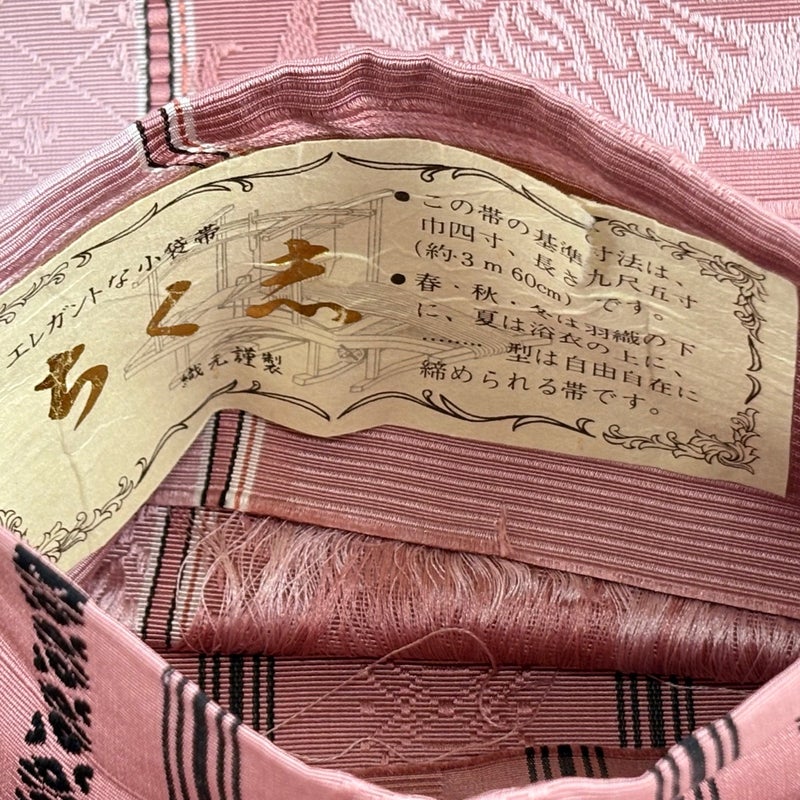 エレガントな小袋帯
ちくま
織元謹製
●この帯の基準寸法は、
巾四寸、長さ九尺五寸
(約3m60cm)です。
●春・秋・冬は羽織の下
に、夏は浴衣の上に、
……… 型は自由自在に
締められる帯です。